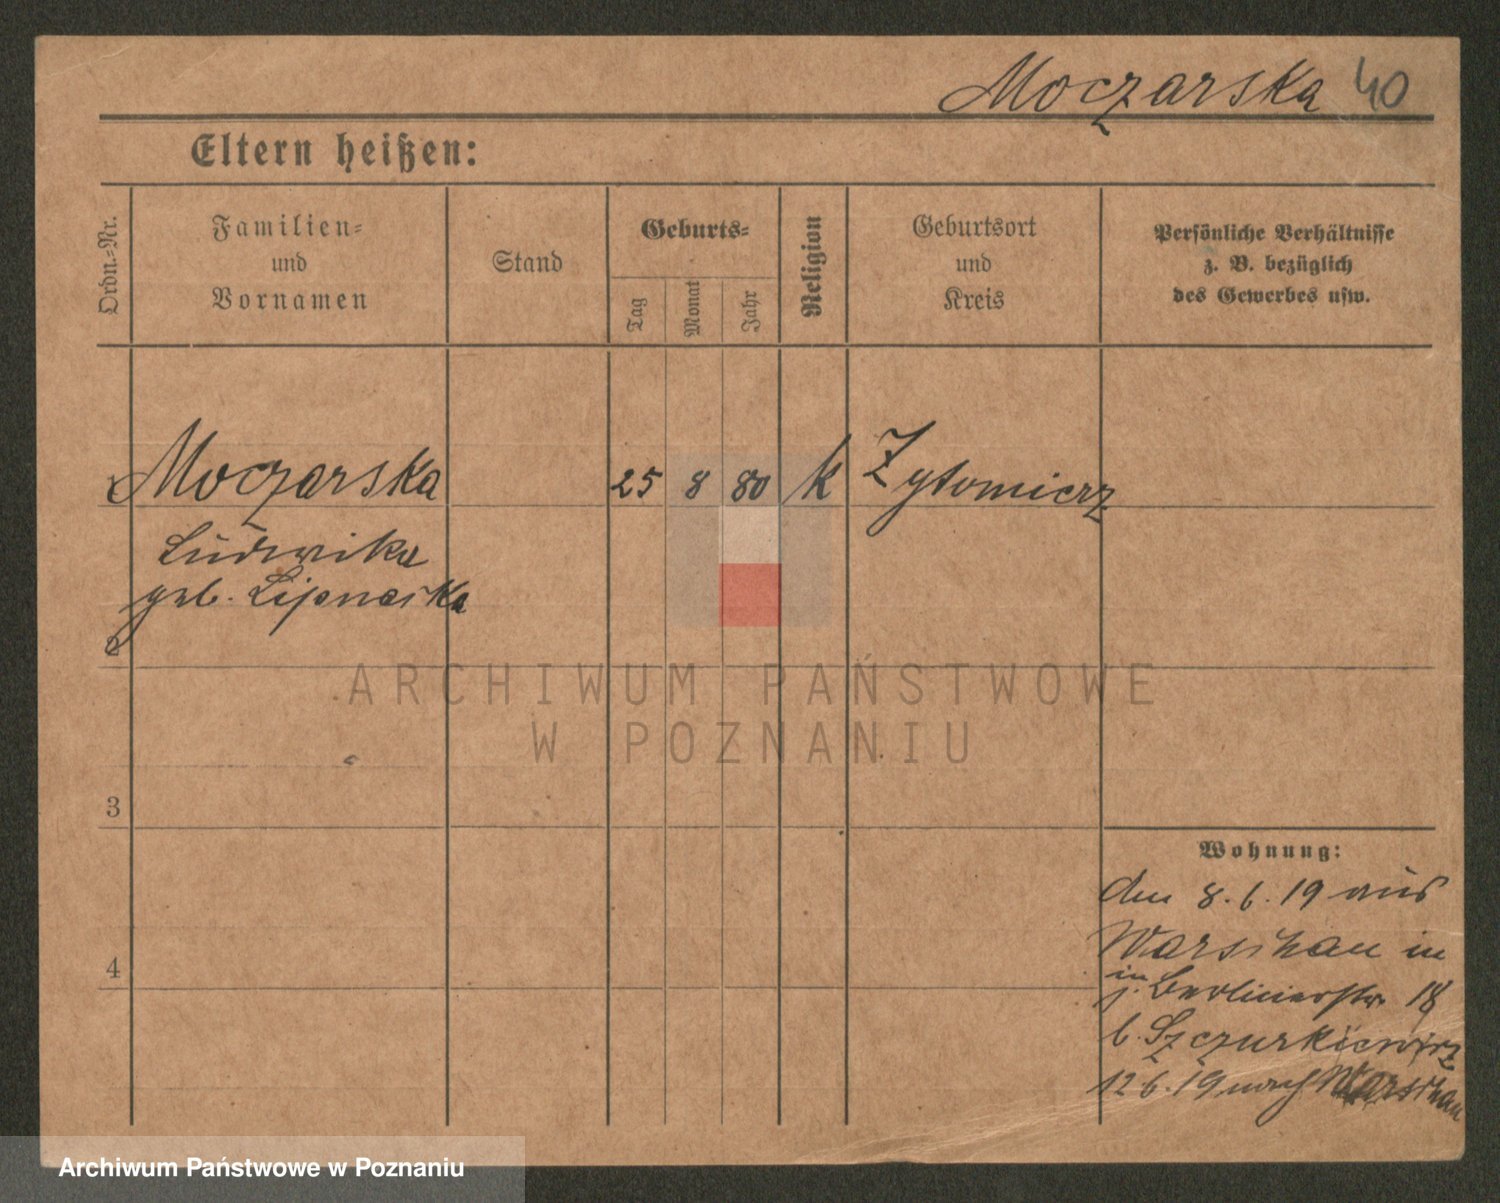 Moczarska 40
Eltern heißen:
Ordn.-Nr.
Familien-
und
Vornamen
Stand
Geburts-
Tag
Monat
Jahr
Religion
Geburtsort
und
Kreis
Persönliche Verhältnisse
z. B. bezüglich
des Gewerbes usw.
1 Moczarska 25 8 80 k Zytomierz
Ludwika
geb.
2
ARCHIWUM PAŃSTWOWE
W POZNANIU
3
Wohnung:
den 8.6.19 aus
Warschau in
in Berlinerstr. 18
b. Szczurkiewicz
12.6.19 nach Warschau
4
Archiwum Państwowe w Poznaniu